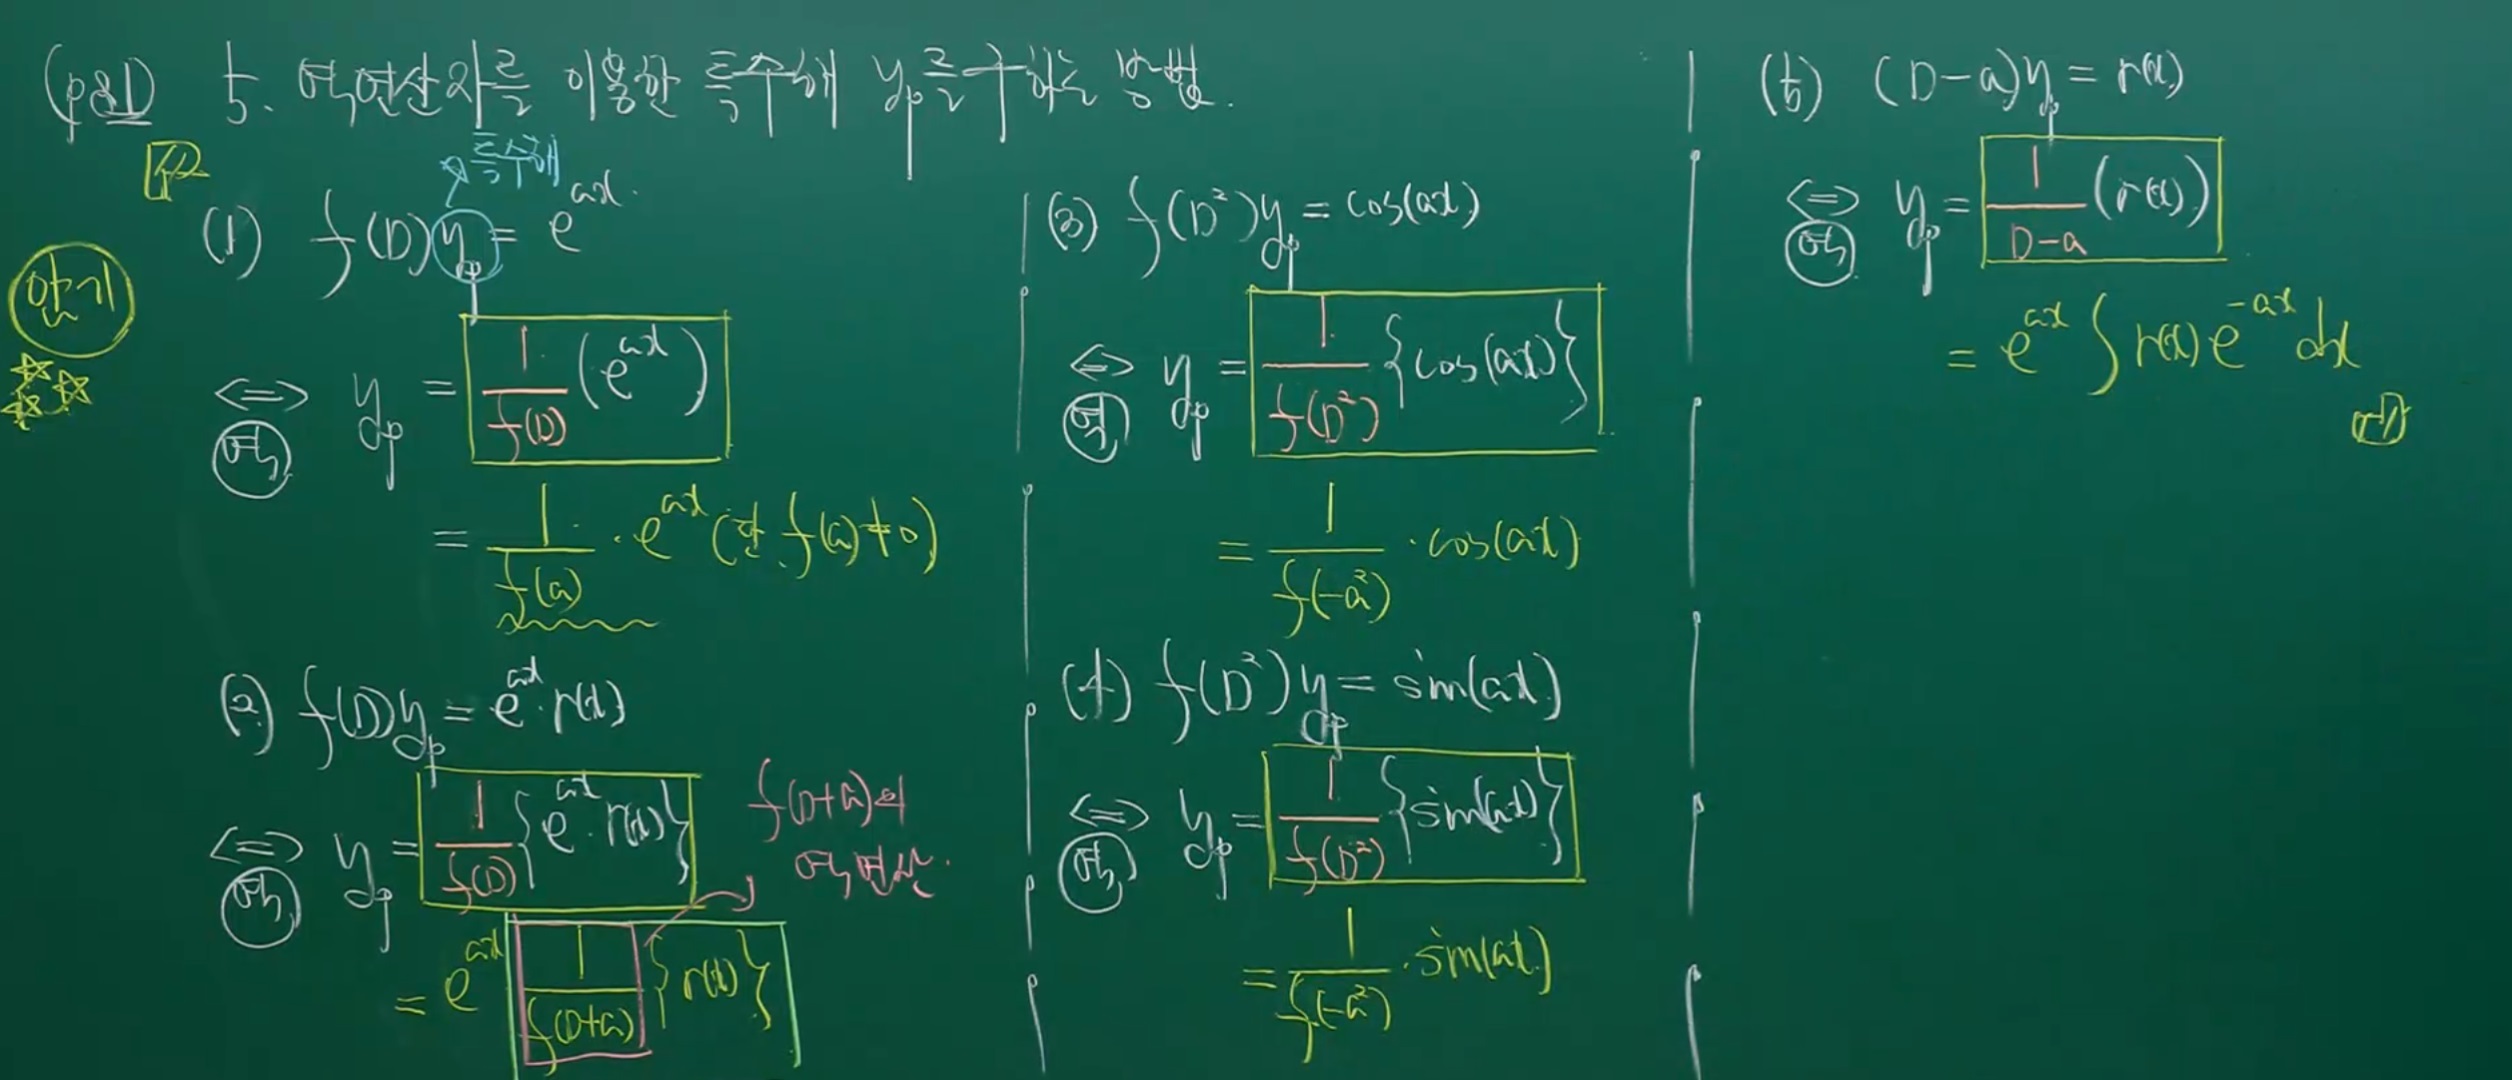 (p81) 5. 역연산자를 이용한 특수해 yp를 구하는 방법.
특수해
암기
(1) f(D)yp = e^{ax}.
⟺ 역 yp = \frac{1}{f(D)}(e^{ax})
= \frac{1}{f(a)}·e^{ax} (단. f(a)≠0)
(2) f(D)yp = e^{ax}·r(x)
⟺ 역 yp = \frac{1}{f(D)}{e^{ax}·r(x)}
f(D+a)의
역연산.
= e^{ax} \frac{1}{f(D+a)}{r(x)}
(3) f(D²)yp = cos(ax)
⟺ 역 yp = \frac{1}{f(D²)}{cos(ax)}
= \frac{1}{f(-a²)}·cos(ax)
(4) f(D²)yp = sin(ax)
⟺ 역 yp = \frac{1}{f(D²)}{sin(ax)}
= \frac{1}{f(-a²)}·sin(ax)
(5) (D-a)yp = r(x)
⟺ 역 yp = \frac{1}{D-a}(r(x))
= e^{ax}∫r(x)e^{-ax}dx